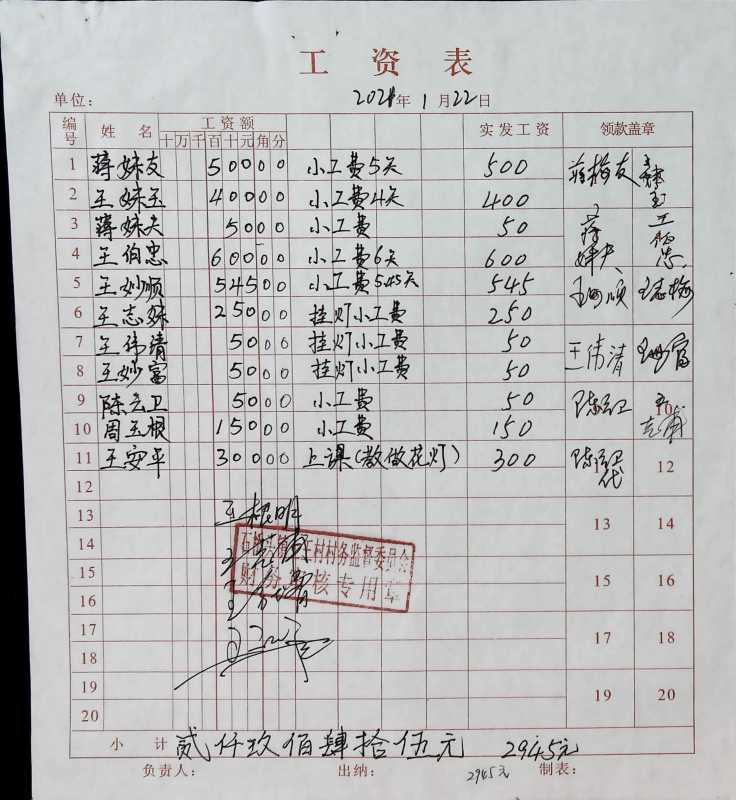 工资表
单位： 2021年1月22日
编号 姓名 工资额 实发工资 领款盖章
十万千百十元角分
1 蒋妹友 50000 小工费5天 500 蒋梅友
2 王妹玉 40000 小工费4天 400
3 蒋妹夫 5000 小工费 50
4 王伯忠 60000 小工费6天 600 王伯忠
5 王妙顺 54500 小工费5.45天 545 王妙顺
6 王志妹 25000 挂灯小工费 250
7 王伟清 5000 挂灯小工费 50 王伟清
8 王妙富 5000 挂灯小工费 50
9 陈云卫 5000 小工费 50 10
10 周玉根 15000 小工费 150
11 王安平 30000 上课(教做花灯) 300 12
12
13 王根明 13 14
14
15 15 16
16
村务监督委员会
财务审核专用章
17 17 18
18
19 19 20
20
小计 贰仟玖佰肆拾伍元 2945元
负责人： 出纳： 2945元 制表：